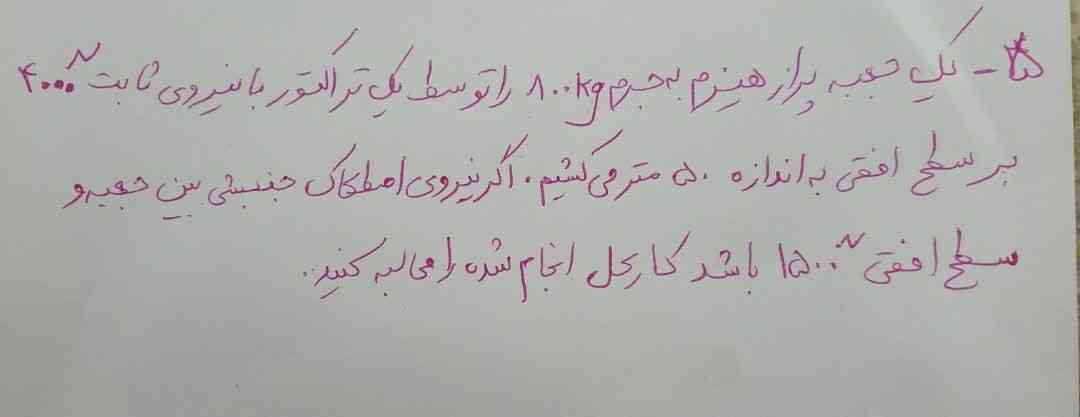 ۵- یک جعبه پراز هیزم به جرم ۸۰۰kg را توسط یک تراکتور با نیروی ثابت ۴۰۰۰N
بر سطح افقی به اندازه ۵۰ متر می کشیم. اگر نیروی اصطکاک جنبشی بین جعبه و
سطح افقی ۱۵۰۰N باشد کار کل انجام شده را محاسبه کنید.